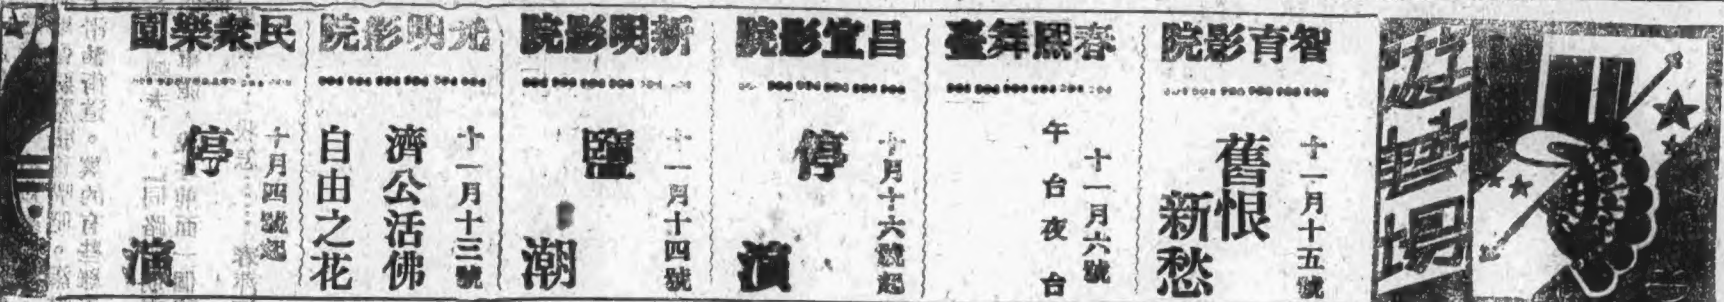 游藝場
智育影院
十一月十五號
舊恨
新愁
春熙舞臺
十一月六號
午台夜台
昌宜影院
十月十六號起
停
演
新明影院
十一月十四號
鹽
潮
光明影院
十一月十三號
濟公活佛
自由之花
民衆樂園
十月四號起
停
演